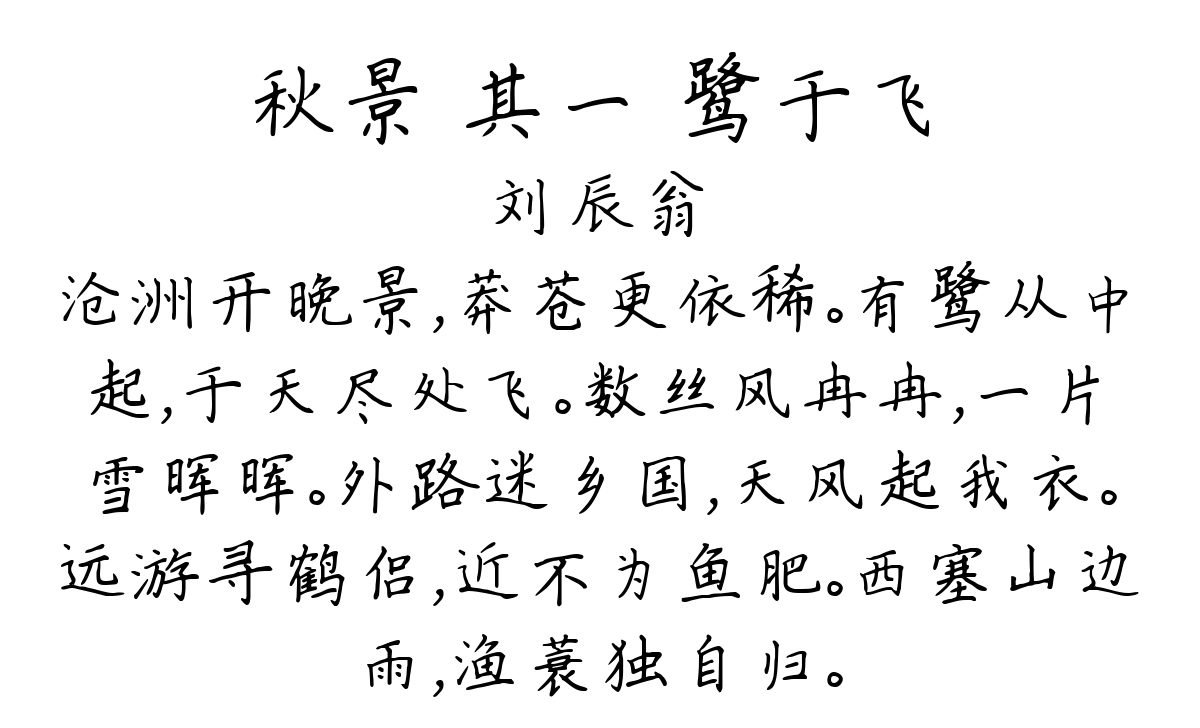 秋景 其一 鹭于飞
刘辰翁
沧洲开晚景,莽苍更依稀。有鹭从中
起,于天尽处飞。数丝风冉冉,一片
雪晖晖。外路迷乡国,天风起我衣。
远游寻鹤侣,近不为鱼肥。西塞山边
雨,渔蓑独自归。